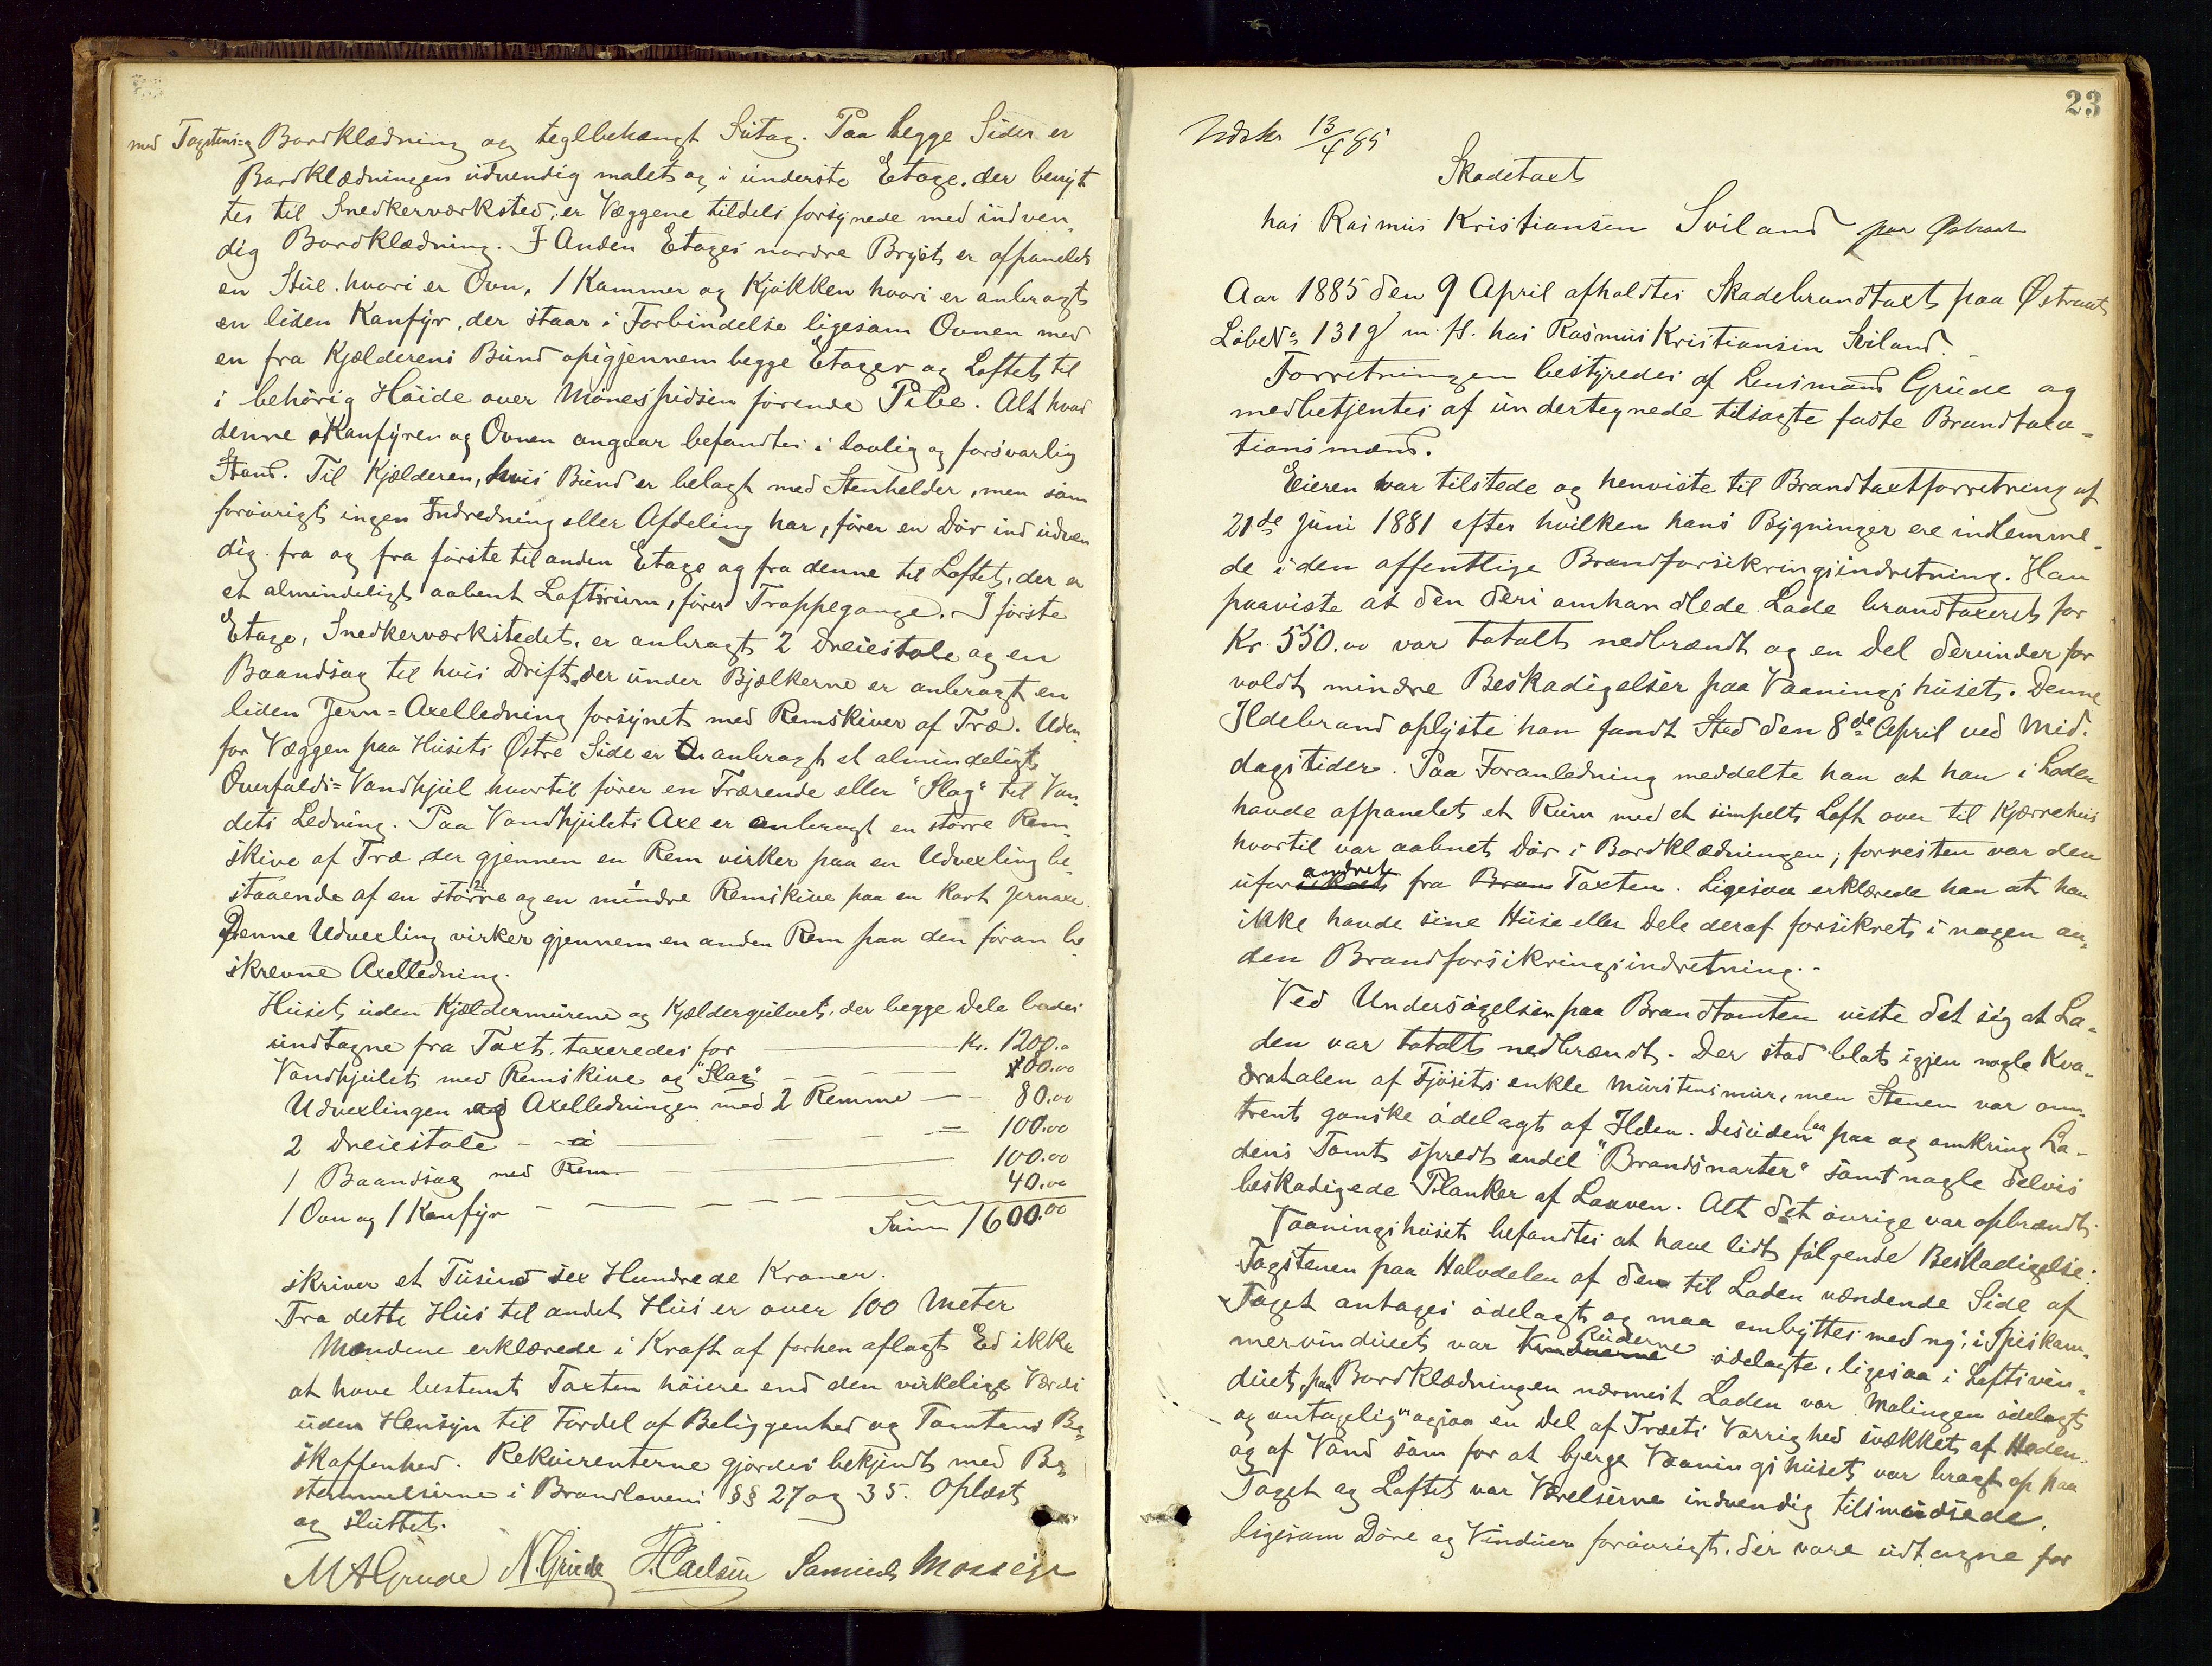 med Tagstens og Bordklædning og teglbehængt Sutag. Paa begge Sider er
Bordklædningen udvendig malet og i underste Etage, der benyt
tes til Snedkerværksted, er Væggene tildels forsynede med indven,
dig Bordklædning. I Anden Etages nordre Bryst er afpanelet
en Stue, hvori er Ovn, 1 Kammer og Kjøkken hvori er anbragt
en liden Kamfyr, der staar i Forbindelse ligesom Ovnen med
en fra Kjælderens Bund opigjennem begge Etager og Loftet til
i behörig Höide over Mönespidsen förende Pibe. Alt hvad
denne Kamfyren og Ovnen angaar befandtes i lovlig og forsvarlig
Stand. Til Kjælderen, hvis Bund er belagt med Stenhelder, men som
forövrigt ingen Indredning eller Afdeling har, förer en Dör ind udven
dig fra og fra förste til anden Etage og fra denne til Loftet, der er
et almindeligt aabent Loftsrum, förer Trappegange. I förste
Etage, Snedkerværkstedet, er anbragt 2 Dreiestole og en
Baandsag til hvis Drift der under Bjælkerne er anbragt en
liden Jern=Axelledning forsynet med Remskiver af Træ. Uden,
for Væggen paa Husets Østre Side er anbragt et almindeligt
Overfalds=Vandhjul hvortil förer en Trærende eller "Slag" til Van,
dets Ledning. Paa Vandhjulets Axe er anbragt en större Rem,
skive af Træ der gjennem en Rem virker paa en Udvexling be,
staaende af en större og en mindre Remskive paa en kort Jernaxe.
Denne Udvexling virker gjennem en anden Rem paa den foran be,
skrevne Axelledning.
Huset uden Kjældermurene og Kjældergulvet, der begge Dele lodes
undtagne fra Taxt, taxeredes for Kr. 1200.0
Vandhjulet med Remskive og "Slag" 100.00
Udvexlingen og Axelledningen med 2 Remme 80.00
2 Dreiestole 100.00
1 Baandsag med Rem 100.00
1 Ovn og 1 Kamfyr 40.00
Suum 1600.00
skriver et Tusind sex Hundrede Kroner.
Fra dette Hus til andet Hus er over 100 Meter
Mændene erklærede i Kraft af forhen aflagt Ed ikke
at have bestemt Taxten höiere end den virkelige Værdi
uden Hensyn til Fordel af Beliggenhed og Tomtens Be,
skaffenhed. Rekvirenterne gjordes bekjendt med Be,
stemmelserne i Brandlovens §§ 27 og 35. Oplæst
og sluttet.
M A Grude N. Grude Samuel Mossige
23
Udskr 13/4 85
Skadetaxt
hos Rasmus Kristiansen Sviland paa Østraat
Aar 1885 den 9 April afholdtes Skadebrandtaxt paa Østraat
LöbeNo 131 g m. fl. hos Rasmus Kristiansen Sviland.
Forretningen bestyredes af Lensmand Grude og
medbetjentes af undertegnede tilsagte faste Brandtaxa=
tionsmænd.
Eieren var tilstede og henviste til Brandtaxtforretning af
21de Juni 1881 efter hvilken hans Bygninger ere indlemme=
de i den offentlige Brandforsikringsindretning. Han
paaviste at den deri omhandlede Lade brandtaxeret for
Kr 550.00 var totalt nedbrændt og en Del derunder for
voldt mindre Beskadigelser paa Vaaningshuset. Denne
Ildebrand oplyste han fandt Sted den 8de April ved Mid.
dagstider. Paa Foranledning meddelte han at han i Laden
havde afpanelet et Rum med et simpelt Loft over til Kjærrehus
hvortil var aabnet Dör i Bordklædningen; forresten var den
uforandret fra Taxten. Ligesaa erklærede han at han
ikke havde sine Huse eller Dele deraf forsikret i nogen an,
den Brandforsikringsindretning.-
Ved Undersögelsen paa Brandtomten viste det sig at La=
den var totalt nedbrændt. Der stod blot igjen nogle Kva=
dratalen af Fjösets enkle Murstensmur, men Stenen var om,
trent ganske ödelagt af Ilden. Desuden laa paa og omkring La=
dens Tomt spredt endel "Brandsnarter" samt nogle delvis
beskadigede Planker af Laaven. Alt det övrige var opbrændt.
Vaaningshuset befandtes at have lidt fölgende Beskadigelse:
Tagstenen paa Halvdelen af den til Laden vendende Side af
Taget antages ödelagt og maa ombyttes med ny, i Spiskam,
mervinduet var Ruderne ödelagte, ligesaa i Loftsvin=
duet, paa Bordklædningen nærmest Laden var Malingen ödelagt
og antagelig ogsaa en Del af Træets Varighed svækket af Heden.
og af Vand som for at bjerge Vaaningshuset var bragt op paa
Taget og Loftet var Værelserne indvendig tilsmudsede,
ligesom Döre og Vinduer forövrigt, der vare udtagne for